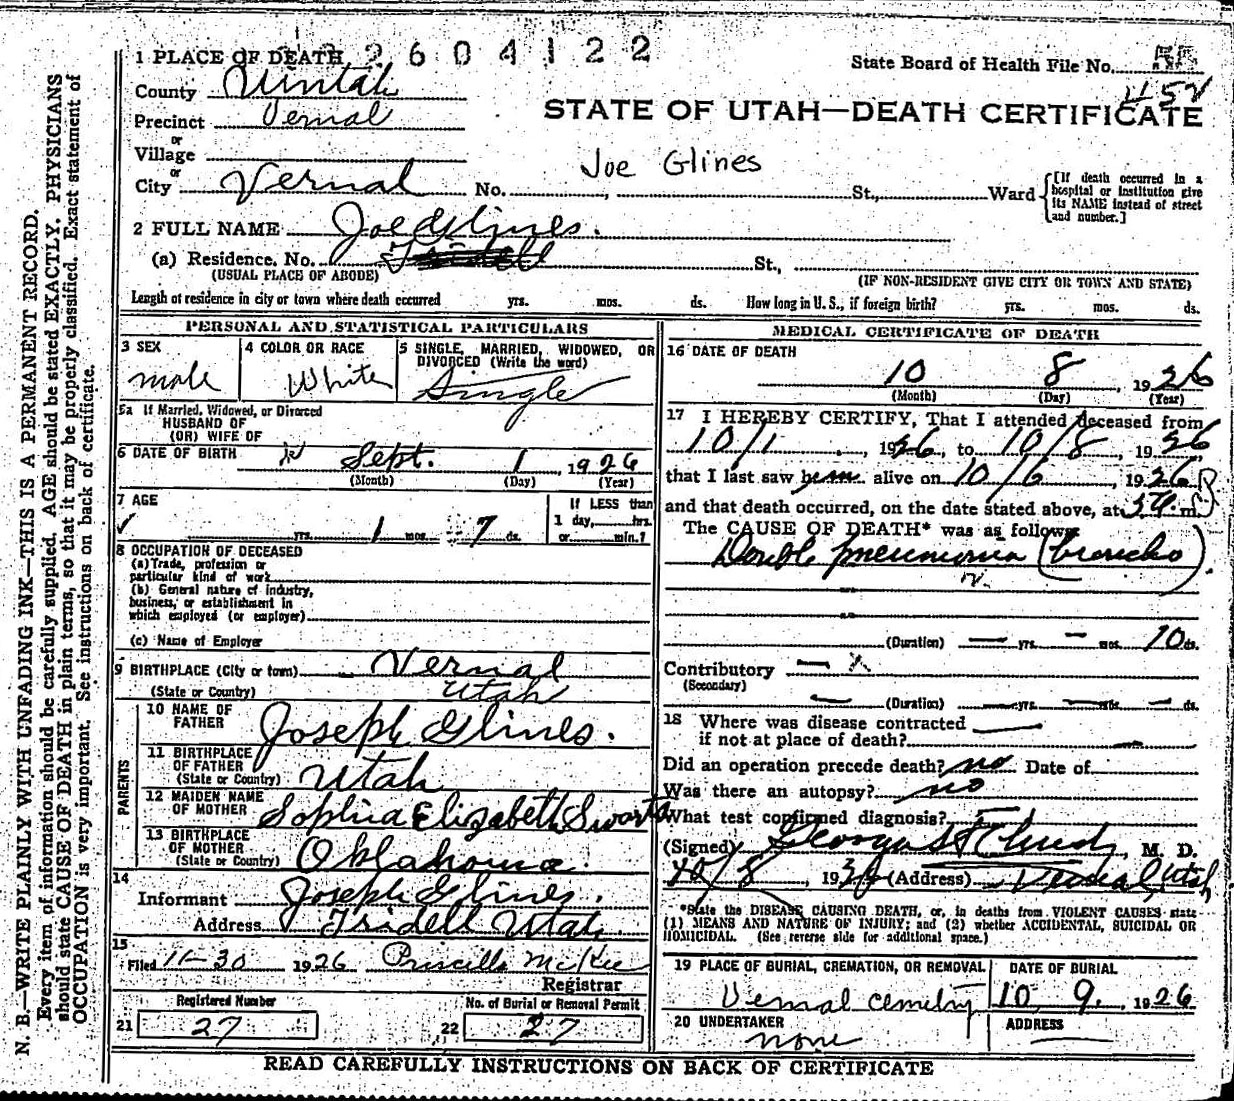 1 PLACE OF DEATH 2604122
State Board of Health File No.
County Uintah
452
STATE OF UTAH—DEATH CERTIFICATE
Precinct Vernal
or
Village
Joe Glines
or
City Vernal No. , St., Ward
[If death occurred in a hospital or institution give its NAME instead of street and number.]
2 FULL NAME Joe Glines.
(a) Residence. No. Tridell St.,
(USUAL PLACE OF ABODE) (IF NON-RESIDENT GIVE CITY OR TOWN AND STATE)
Length of residence in city or town where death occurred yrs. mos. ds. How long in U. S., if foreign birth? yrs. mos. ds.
PERSONAL AND STATISTICAL PARTICULARS
3 SEX
male
4 COLOR OR RACE
White
5 SINGLE, MARRIED, WIDOWED, OR
DIVORCED (Write the word)
Single
5a If Married, Widowed, or Divorced
HUSBAND OF
(OR) WIFE OF
6 DATE OF BIRTH Sept. 1, 1926
(Month) (Day) (Year)
7 AGE
yrs. 1 mos. 7 ds.
If LESS than
1 day, hrs.
or min.?
8 OCCUPATION OF DECEASED
(a) Trade, profession or
particular kind of work
(b) General nature of industry,
business, or establishment in
which employed (or employer)
(c) Name of Employer
9 BIRTHPLACE (City or town) Vernal
(State or Country) Utah
PARENTS
10 NAME OF
FATHER Joseph Glines.
11 BIRTHPLACE
OF FATHER
(State or Country) Utah
12 MAIDEN NAME
OF MOTHER Sophia Elizabeth Swarts
13 BIRTHPLACE
OF MOTHER
(State or Country) Oklahoma.
14
Informant Joseph Glines.
Address Tridell Utah
15
Filed 11-30 1926 Priscilla McKee
Registrar
Registered Number No. of Burial or Removal Permit
21 27 22 27
MEDICAL CERTIFICATE OF DEATH
16 DATE OF DEATH
10 8, 1926
(Month) (Day) (Year)
17 I HEREBY CERTIFY, That I attended deceased from
10/1, 1926, to 10/8, 1926
that I last saw him alive on 10/6, 1926
and that death occurred, on the date stated above, at m.
The CAUSE OF DEATH* was as follows:
Double pneumonia (broncho)
(Duration) — yrs. — mos. 10 ds.
Contributory —
(Secondary)
(Duration) — yrs. — mos. — ds.
18 Where was disease contracted —
if not at place of death? —
Did an operation precede death? no Date of
Was there an autopsy? no
What test confirmed diagnosis? —
(Signed) , M. D.
10/8, 19 (Address) Vernal, Utah
*State the DISEASE CAUSING DEATH, or, in deaths from VIOLENT CAUSES state
(1) MEANS AND NATURE OF INJURY; and (2) whether ACCIDENTAL, SUICIDAL OR
HOMICIDAL. (See reverse side for additional space.)
19 PLACE OF BURIAL, CREMATION, OR REMOVAL
Vernal cemetry
DATE OF BURIAL
10 9. 1926
20 UNDERTAKER
none
ADDRESS
READ CAREFULLY INSTRUCTIONS ON BACK OF CERTIFICATE
N. B.—WRITE PLAINLY WITH UNFADING INK—THIS IS A PERMANENT RECORD.
Every item of information should be carefully supplied. AGE should be stated EXACTLY. PHYSICIANS
should state CAUSE OF DEATH in plain terms, so that it may be properly classified. Exact statement of
OCCUPATION is very important. See instructions on back of certificate.